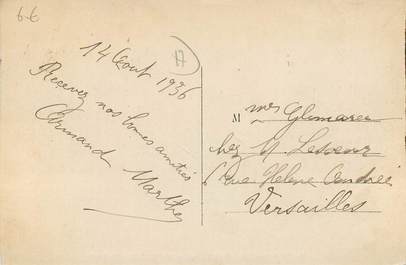 6€
A
14 Aout 1936
Recevez nos bonnes amitiés
Armand Marthe
M mes Glemarec
chez M. Lesueur
6 rue Helene Andrée
Versailles